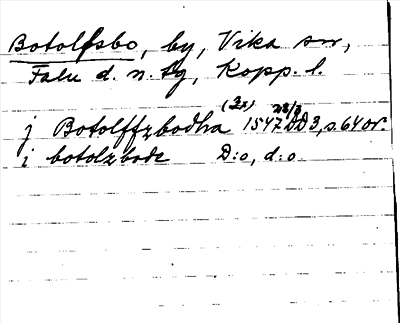 Botolfsbo, by, Vika sn,
Falu d. n. tg, Kopp. l.
(2x) 28/8
j Botolffzbodha 1547 DD3, s. 64 or.
i botolzbode D:o, d:o